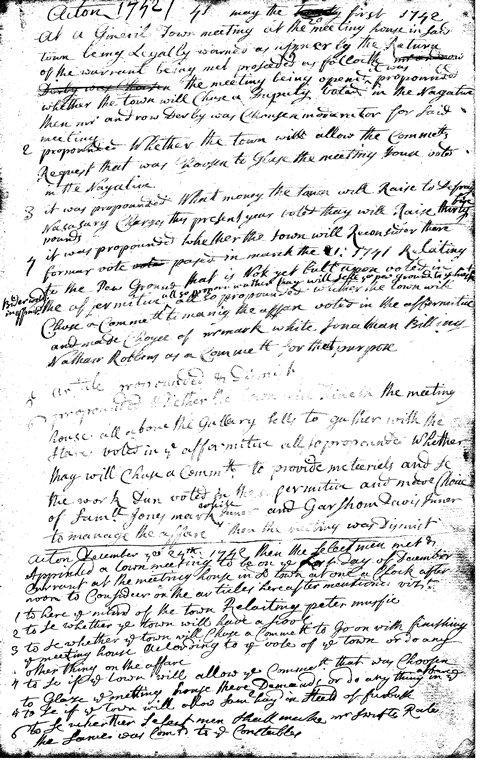 Acton 1742 / 41 may the first 1742
At a Gineril Town meeting at the meeting house in said
town being Legally warned as appeer by the Return
of the warrant being met preseded as followeth
the meeting being opened it was propounded
whether the town will Chuse a Deputy voted in the Nagative
then mr androw Derby was Chousen moderator for said
meeting
2 propounded Whether the town will allow the Committ
Request that was Chousen to Glase the meeting House voted
in the Nagative
3 it was propounded What money the town will Raise to Defray
Nasasary Charges this present year voted thay will Raise thirty five
pounds
4 it was propounded whether the town will Reconsider there
former vote pased in march the 1741 Relating
to the Pew Ground that is Not yet built upon voted in
the affermitive also propounded whether the town will
Chuse a Committ to manig the affare voted in the affermitive
and made Choyce of mr mark white Jonathan Billing
Nathan Robbens as a Committ for that purpose
5 artile propounded & Dismist
propounded Whether the town will finesh the meeting
house all above the Gallery to gather with the
stars voted in ye affermitive all so propounded Whether
thay will Chuse a Committ to provide meteriels and se
the work Dun voted in the affermitive and made Choice
of Samll Jones mark white and Garshom Davis Juner
to manage the affare then the meeting was Dismist
Acton December ye 24th: 1742 then the selectmen met &
appointed a town meeting to be on ye last day of December
Currant at the meeting house in sd town at one a Clock after
noon to Consider on the articles hereafter mentioned viz
1 to here ye mind of the town Relaiting peter
2 to se whether ye town will have a scool
3 to se whether ye town will Chuse a Committ to Go on with finishing
ye meeting house According to ye vote of ye town or do any
other thing on the affare
4 to se if ye town will allow ye Committ that was Choosen
to Glase ye meeting house there Demands or do any thing in ye affare
to se if ye town will allow in steed of
6 to se whether select men shall make mr Swifts Rate
the same was Comtd to ye Constables